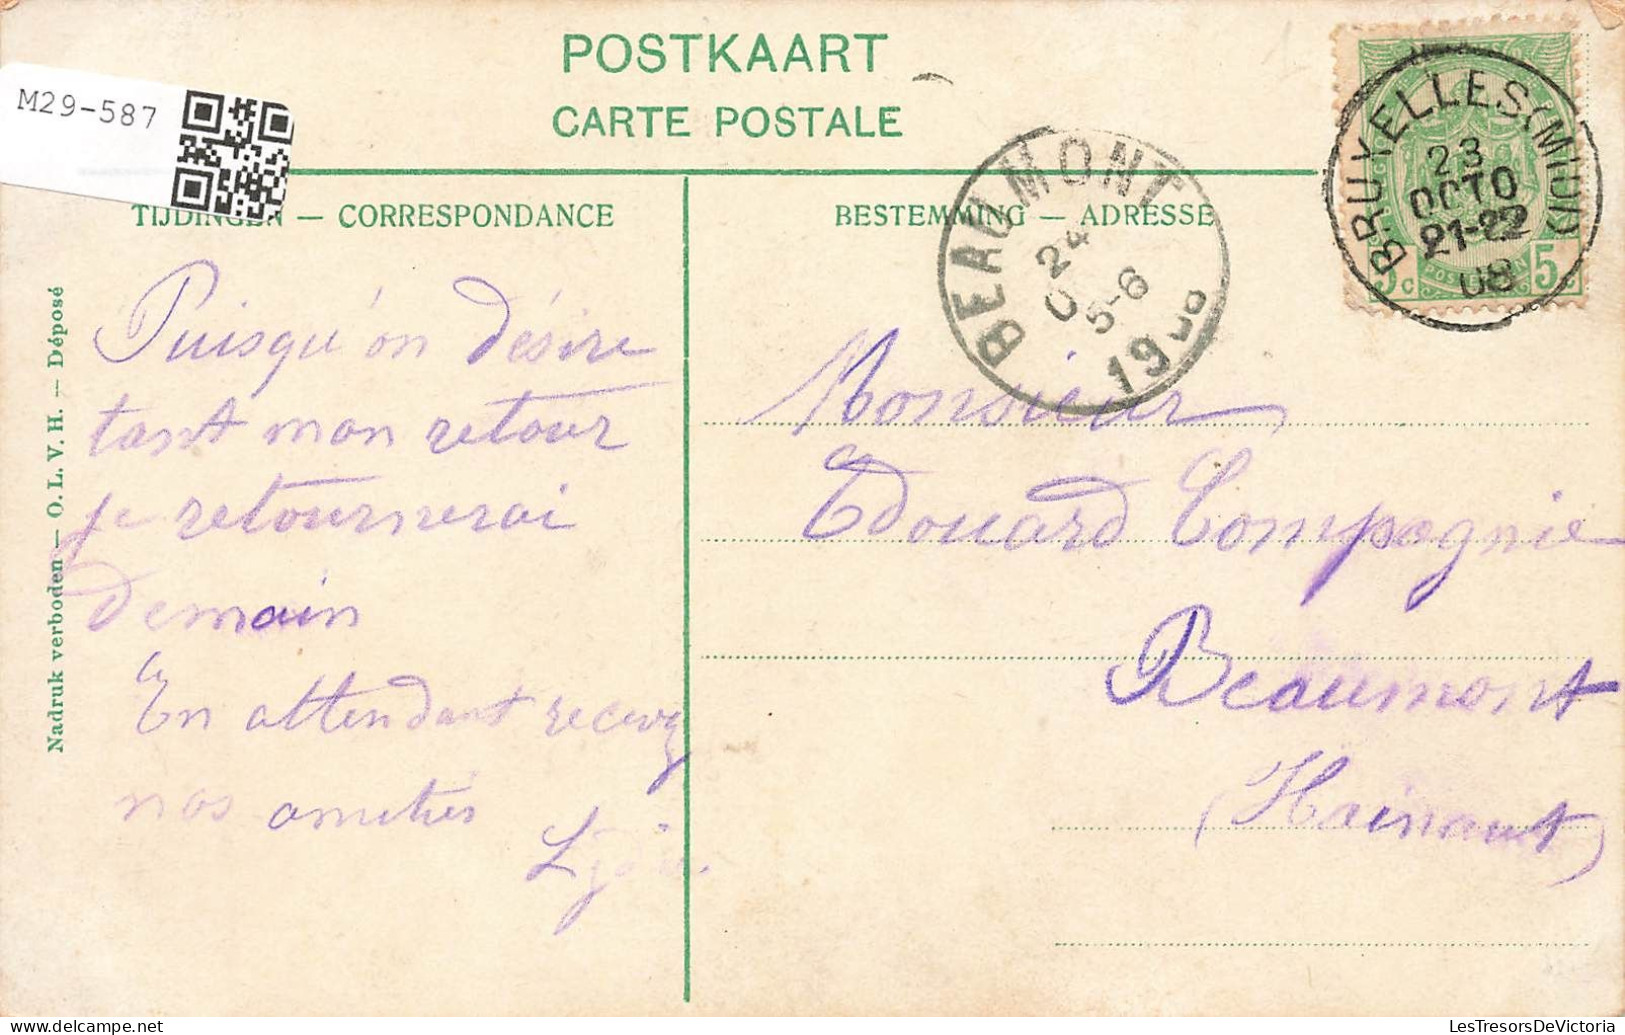 POSTKAART
CARTE POSTALE
M29-587
TIJDINGEN — CORRESPONDANCE
BESTEMMING — ADRESSE
BRUXELLES (MIDI)
23
OCTO
21-22
08
BEAUMONT
24
5-6
1908
5c
5c
Nadruk verboden — O. L. V. H. — Déposé
Puisqu'on désire
tant mon retour
je retournerai
demain
En attendant recevez
nos amitiés
Monsieur
Edouard Compagnie
Beaumont
(Hainaut)
delcampe.net
LesTresorsDeVictoria